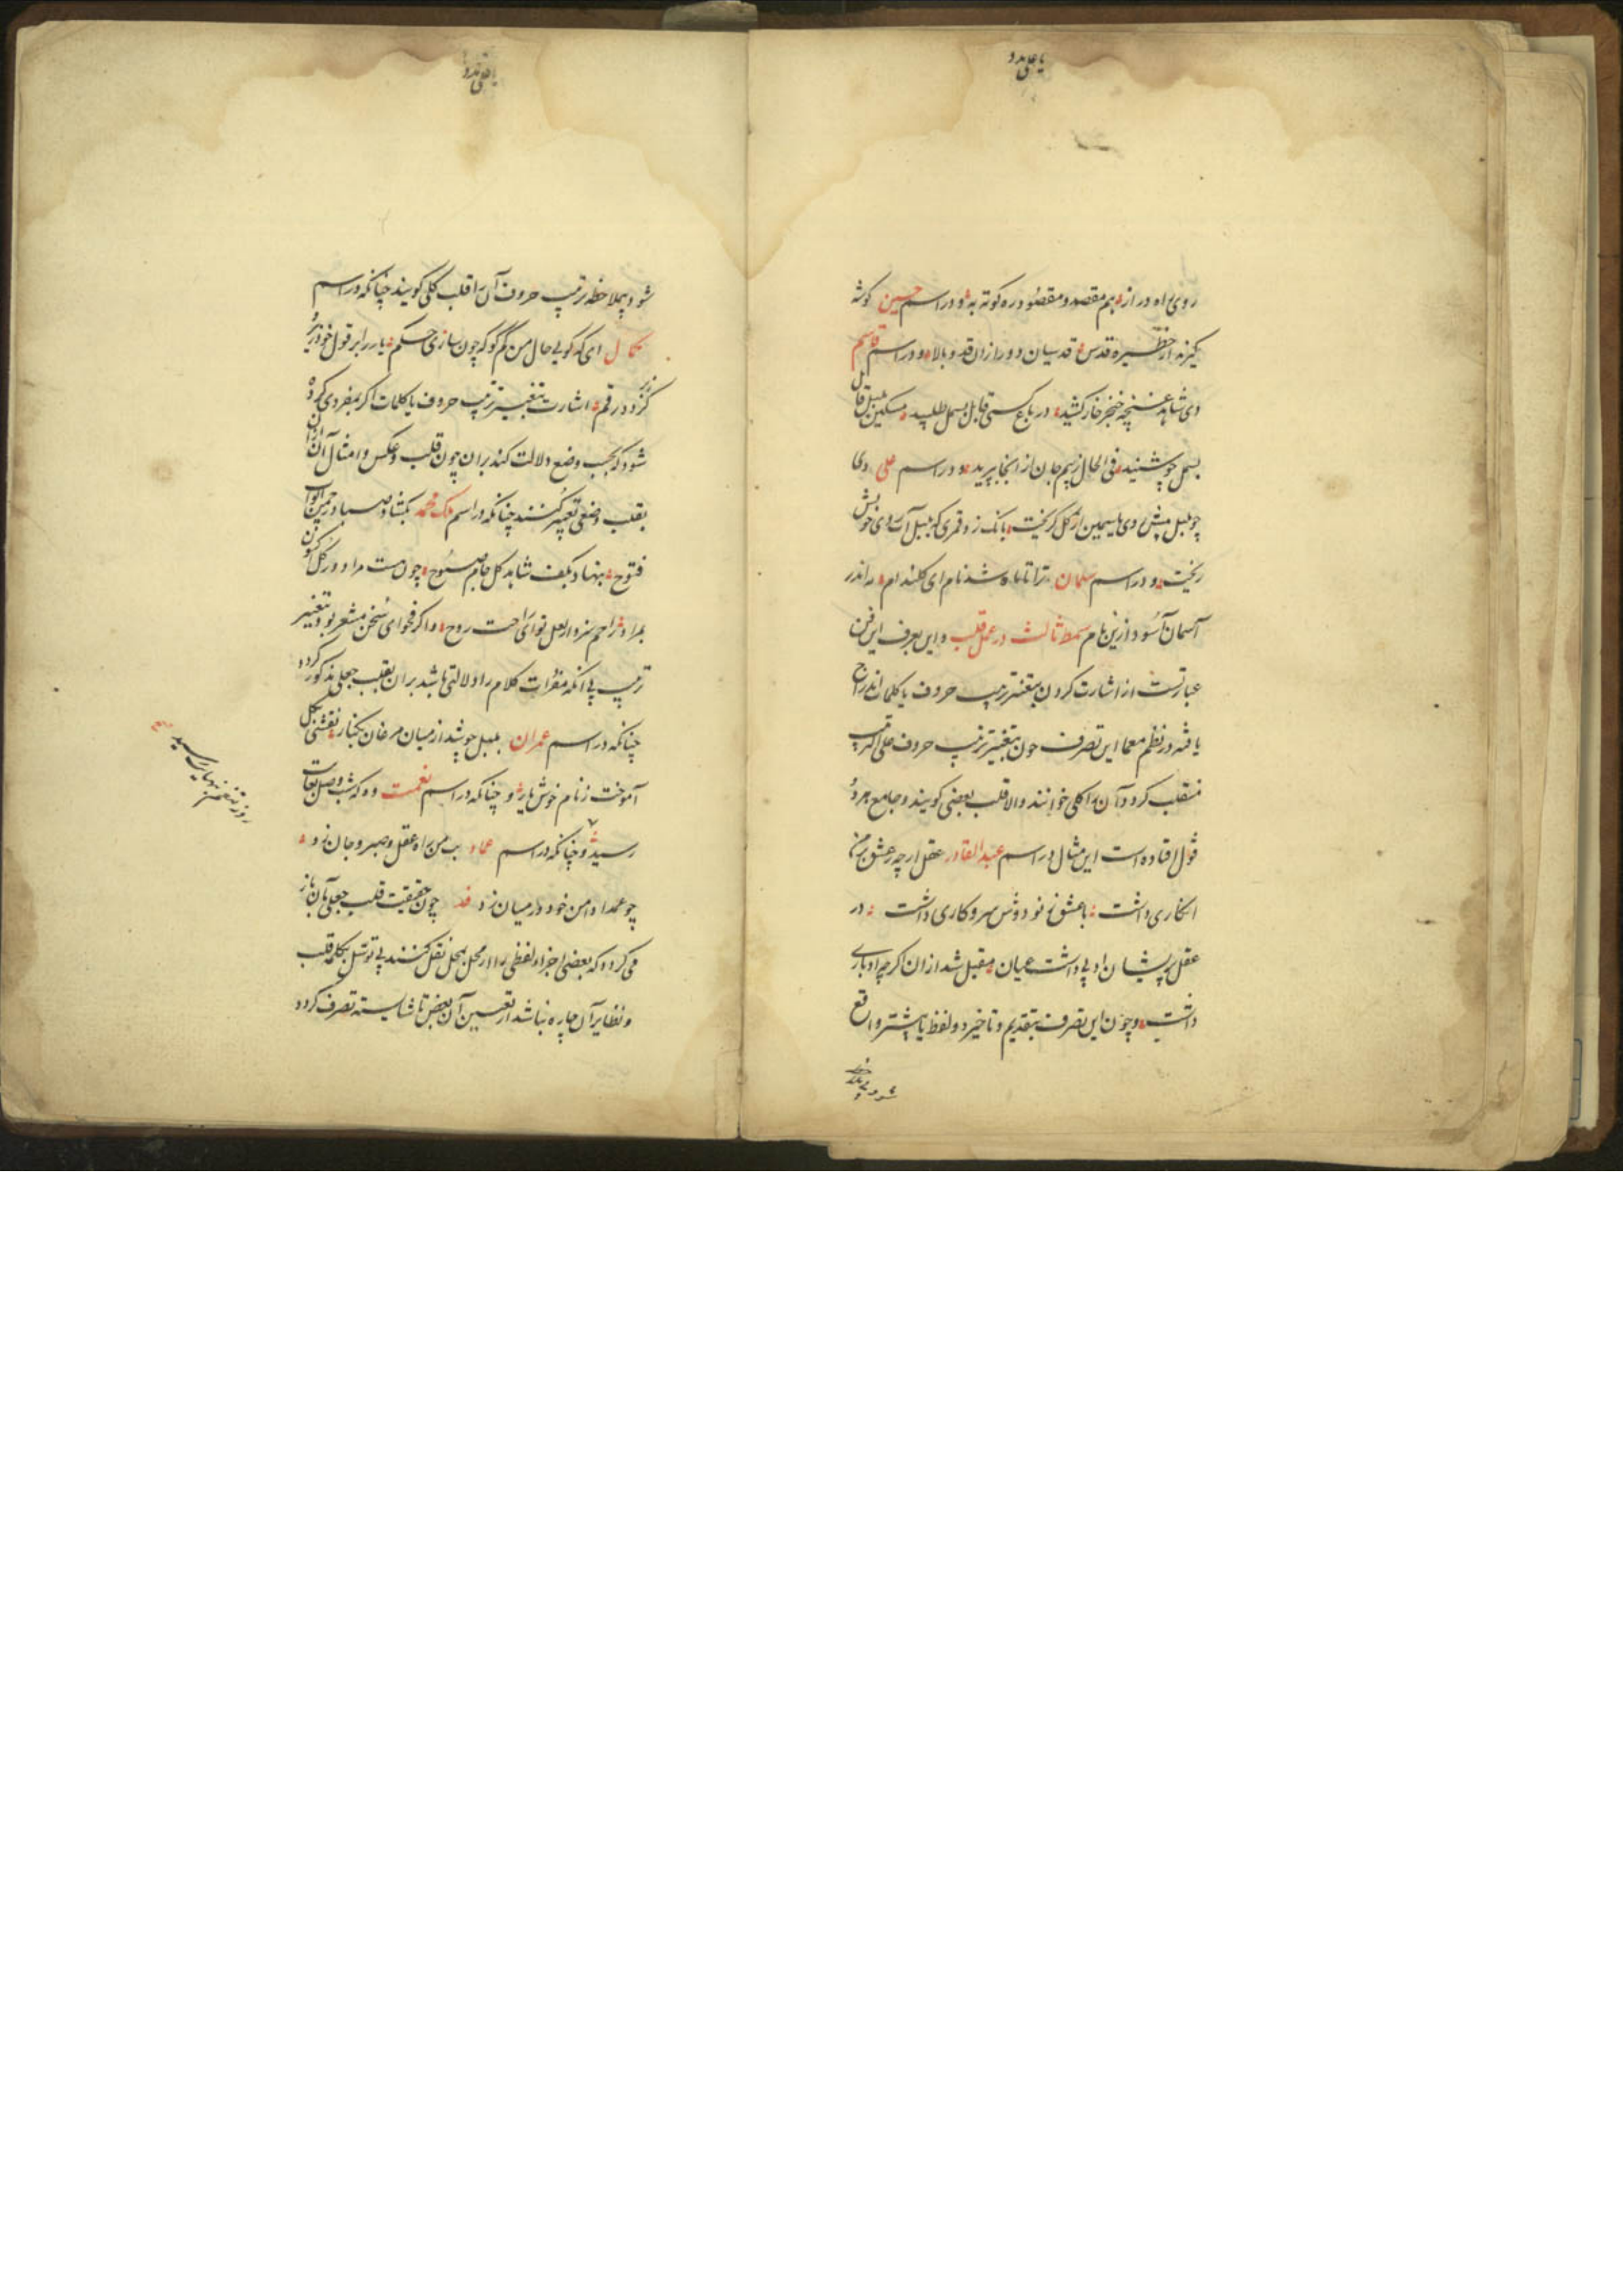 یا علی مدد
روی براه دراز هم مقصد و مقصود ره کوته به و در اسم حسین گوشه
گیرند از حظیره قدس قدسیان دور از ان قد و بالا و در اسم قاسم
دی شاهد غنچه خنجر خار کشید در باغ کسی قابل بسمل طلبید مسکین بلبل
بسمل چو شنید فی الحال ز بیم جان از انجا پرید و در اسم علی دی
چو بلبل پیش وی یاسمین از گل گریخت بانک زد قمری که بلبل آب روی خویش
ریخت و در اسم سلمان ترا تا ماه شد نام ای ام اندر
آسمان آسود ازین نام سمط ثالث در عمل قلب و این بعرف این فن
عبارتست از اشارت کردن بتغییر ترتیب حروف یا کلمات اندراج
یافته در نظم معما این تصرف چون بتغییر ترتیب حروف علی الترتیب
منقلب کردد آن را کلی خوانند والا قلب بعضی گویند و جامع هر دو
قول افتاده است این مثال در اسم عبدالقادر عقل ارچه ز عشق بر من
انکاری داشت با عشق تو دوش سر و کاری داشت در
عقل پریشان اد بی داشت عیان مقبل شد ازان گرچه ادباری
داشت و چون این تصرف بتقدیم و تاخیر دو لفظ یا بیشتر واقع
یا علی مدد
شود بملاحظه ترتیب حروف آن را قلب کلی گویند چنانکه در اسم
کمال ای که گویی حال من گم گو که چون سازی حکم یار برابر قول خود
گزد در رقم اشارت بتغییر ترتیب حروف یا کلمات اگر بمفردی کرده
شود که بحسب وضع دلالت کند بران چون قلب و عکس و امثال آن ازان
بقلب وضعی تعبیر کنند چنانکه در اسم ملک محمد بگشاد صبا در چمن ابواب
فتوح بنهاد بکف شاهد گل جام صبوح چون مست مراد در گل کنون
بمراد راحم سزد از لعل تو ای راحت روح و اگر فحوای سخن مشعر بود بتغییر
ترتیب بی انکه مفردات کلام را دلالتی باشد بران بقلب جعلی مذکور گردد
چنانکه در اسم عمران بلبل چو شد از میان مرغان بکنار نقشی بگل
آموخت ز نام خوش یار و چنانکه در اسم نعمت وه که شب وصل
رسید و چنانکه در اسم عماد بت من راه عقل و صبر و جان زد
چو عمدا دامن خود در میان زد چون حقیقت قلب جعلی بآن باز
می گردد که بعضی اجزاء لفظی را از محل بمحل نقل کنند بی توسل بکلمه قلب
و نظایر آن چاره نباشد از تعیین آن بعض تا شایسته تصرف گردد